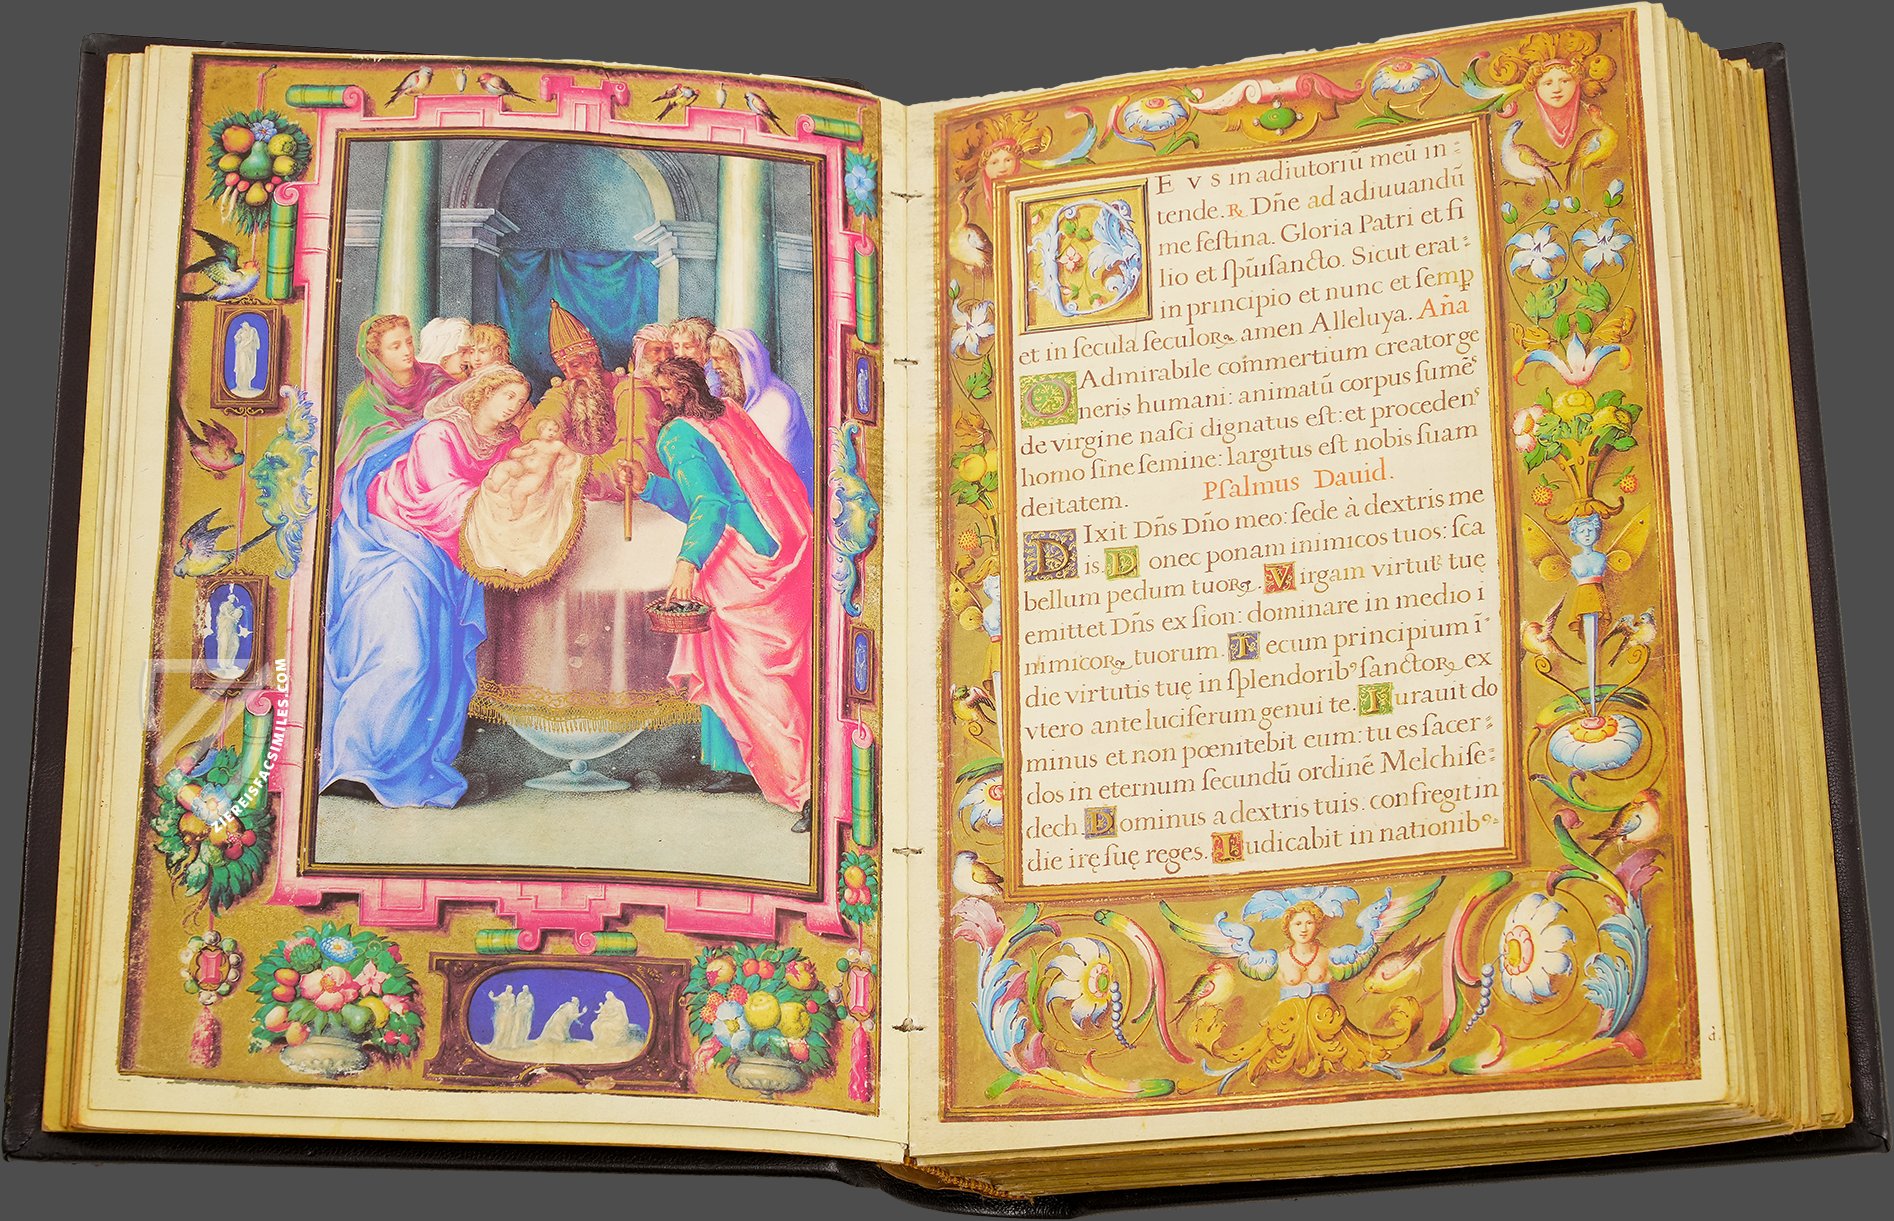 ZIEREISFACSIMILES.COM
DEVS in adiutoriū meū in⹀
tende. ℟ Dñe ad adiuuandū
me feſtina. Gloria Patri et fi
lio et ſpūiſancto. Sicut erat⹀
in principio et nunc et ſemp̱
et in ſecula ſeculoꝝ amen Alleluya. Aña
O Admirabile commertium creator ge
neris humani: animatū corpus ſumēˢ
de virgine naſci dignatus eſt: et procedenˢ
homo ſine ſemine: largitus eſt nobis ſuam
deitatem. Pſalmus Dauid.
DIxit Dñs Dño meo: ſede à dextris me
is. Donec ponam inimicos tuos: ſca
bellum pedum tuoꝝ. Virgam virtutˢ tuę
emittet Dñs ex ſion: dominare in medio i
nimicoꝝ tuorum. Tecum principium ī⹀
die virtutis tuę in ſplendoribꝰ ſanctoꝝ ex
vtero ante luciferum genui te. Iurauit do
minus et non pœnitebit eum: tu es ſacer⹀
dos in eternum ſecundū ordinē Melchiſe⹀
dech. Dominus a dextris tuis. confregit in
die irę ſuę reges. Iudicabit in nationibꝰ
d.